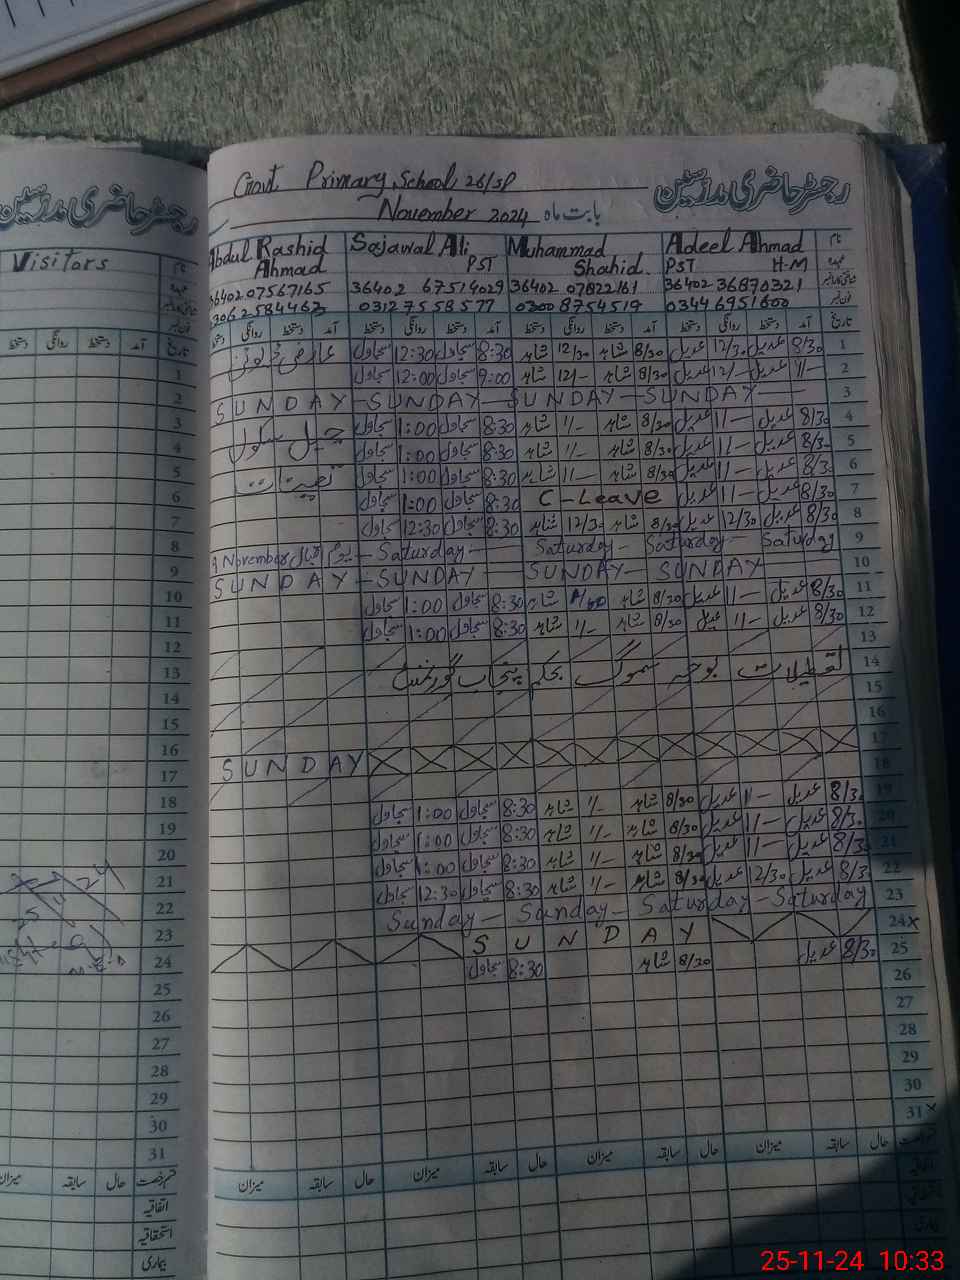 رجسٹر حاضری مدرسین
Visitors
نام
عہدہ
شناختی کارڈ نمبر
فون نمبر
دستخط روانگی دستخط آمد تاریخ
1
2
3
4
5
6
7
8
9
10
11
12
13
14
15
16
17
18
19
20
21
22
23
24
25
26
27
28
29
30
31
میزان سابقہ حال قسم رخصت
اتفاقیہ
استحقاقیہ
بیماری
Govt. Primary School, 26/SP
رجسٹر حاضری مدرسین
November 2024 بابت ماہ
Abdul Rashid Ahmad
Sajawal Ali PST
Muhammad Shahid.
Adeel Ahmad PST H-M
نام
عہدہ
36402 07567165 36402 67514029 36402 07822161 36402 36870321 شناختی کارڈ نمبر
03062584463 0312 7558577 0300 8754519 0344 6951600 فون نمبر
دستخط روانگی دستخط آمد دستخط روانگی دستخط آمد دستخط روانگی دستخط آمد دستخط روانگی دستخط آمد تاریخ
سجاول 12:30 سجاول 8:30 شاہد 12/30 شاہد 8/30 عدیل 12/30 عدیل 8/30 1
سجاول 12:00 سجاول 9:00 شاہد 12/- شاہد 8/30 عدیل 12/- عدیل 2
SUNDAY - SUNDAY - SUNDAY - SUNDAY 3
سجاول 1:00 سجاول 8:30 شاہد 1/- شاہد 8/30 عدیل 11- عدیل 8/30 4
سجاول 1:00 سجاول 8:30 شاہد 1/- شاہد 8/30 عدیل 11- عدیل 8/30 5
سجاول 1:00 سجاول 8:30 شاہد 11- شاہد 8/30 عدیل 11- عدیل 8/30 6
سجاول 1:00 سجاول 8:30 C-Leave عدیل 11- عدیل 8/30 7
سجاول 12:30 سجاول 8:30 شاہد 12/30 شاہد 8/30 عدیل 12/30 عدیل 8/30 8
9 November یوم اقبال - Saturday - Saturday - Saturday - Saturday 9
SUNDAY - SUNDAY - SUNDAY - SUNDAY 10
سجاول 1:00 سجاول 8:30 شاہد شاہد 8/30 عدیل 11- عدیل 8/30 11
سجاول 1:00 سجاول 8:30 شاہد 1/- شاہد 8/30 عدیل 11- عدیل 8/30 12
13
تعطیلات بوجہ سموگ بحکم پنجاب گورنمنٹ 14
15
16
SUNDAY 17
18
سجاول 1:00 سجاول 8:30 شاہد 1/- شاہد 8/30 عدیل 11- عدیل 8/30 19
سجاول 1:00 سجاول 8:30 شاہد 1/- شاہد 8/30 عدیل 11- عدیل 8/30 20
سجاول 1:00 سجاول 8:30 شاہد 1/- شاہد 8/30 عدیل 11- عدیل 8/30 21
سجاول 12:30 سجاول 8:30 شاہد 1/- شاہد 8/30 عدیل 12/30 عدیل 8/30 22
Sunday - Sunday - Saturday - Saturday 23
SUNDAY 24x
سجاول 8:30 شاہد 8/30 عدیل 8/30 25
26
27
28
29
30
31x
میزان سابقہ حال میزان سابقہ حال میزان سابقہ حال میزان سابقہ حال قسم رخصت
اتفاقیہ
استحقاقیہ
بیماری
25-11-24 10:33